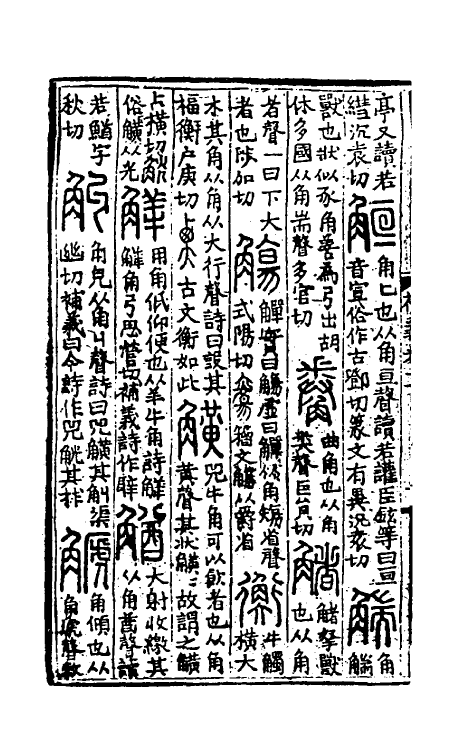 亭又讀若繕況袁切𧢻角匕也从角亘聲讀若讙臣鉉等曰亘音宣俗作古鄧切篆文有異況袁切𧤗角𧤗
獸也狀似豕角善爲弓出胡休多國从角耑聲多官切觠曲角也从角𢍏聲巨員切觰觰拏獸也从角
者聲一曰下大者也陟加切觴觶實曰觴虛曰觶从角𥏻省聲式陽切籀文觴从爵省衡牛觸橫大
木其角从角从大行聲詩曰設其楅衡户庚切古文衡如此觵兕牛角可以飲者也从角黃聲其狀觵觵故謂之觵
古橫切觥俗觵从光觲用角低仰便也从羊牛角詩觲觲角弓息營切補義詩作騂䚇大射收繳具从角酋聲讀
若鰌字秋切觓角皃从角丩聲詩曰兕觵其觓渠幽切補義曰今詩作兕觥其觩䚦角傾也从角虒聲敕